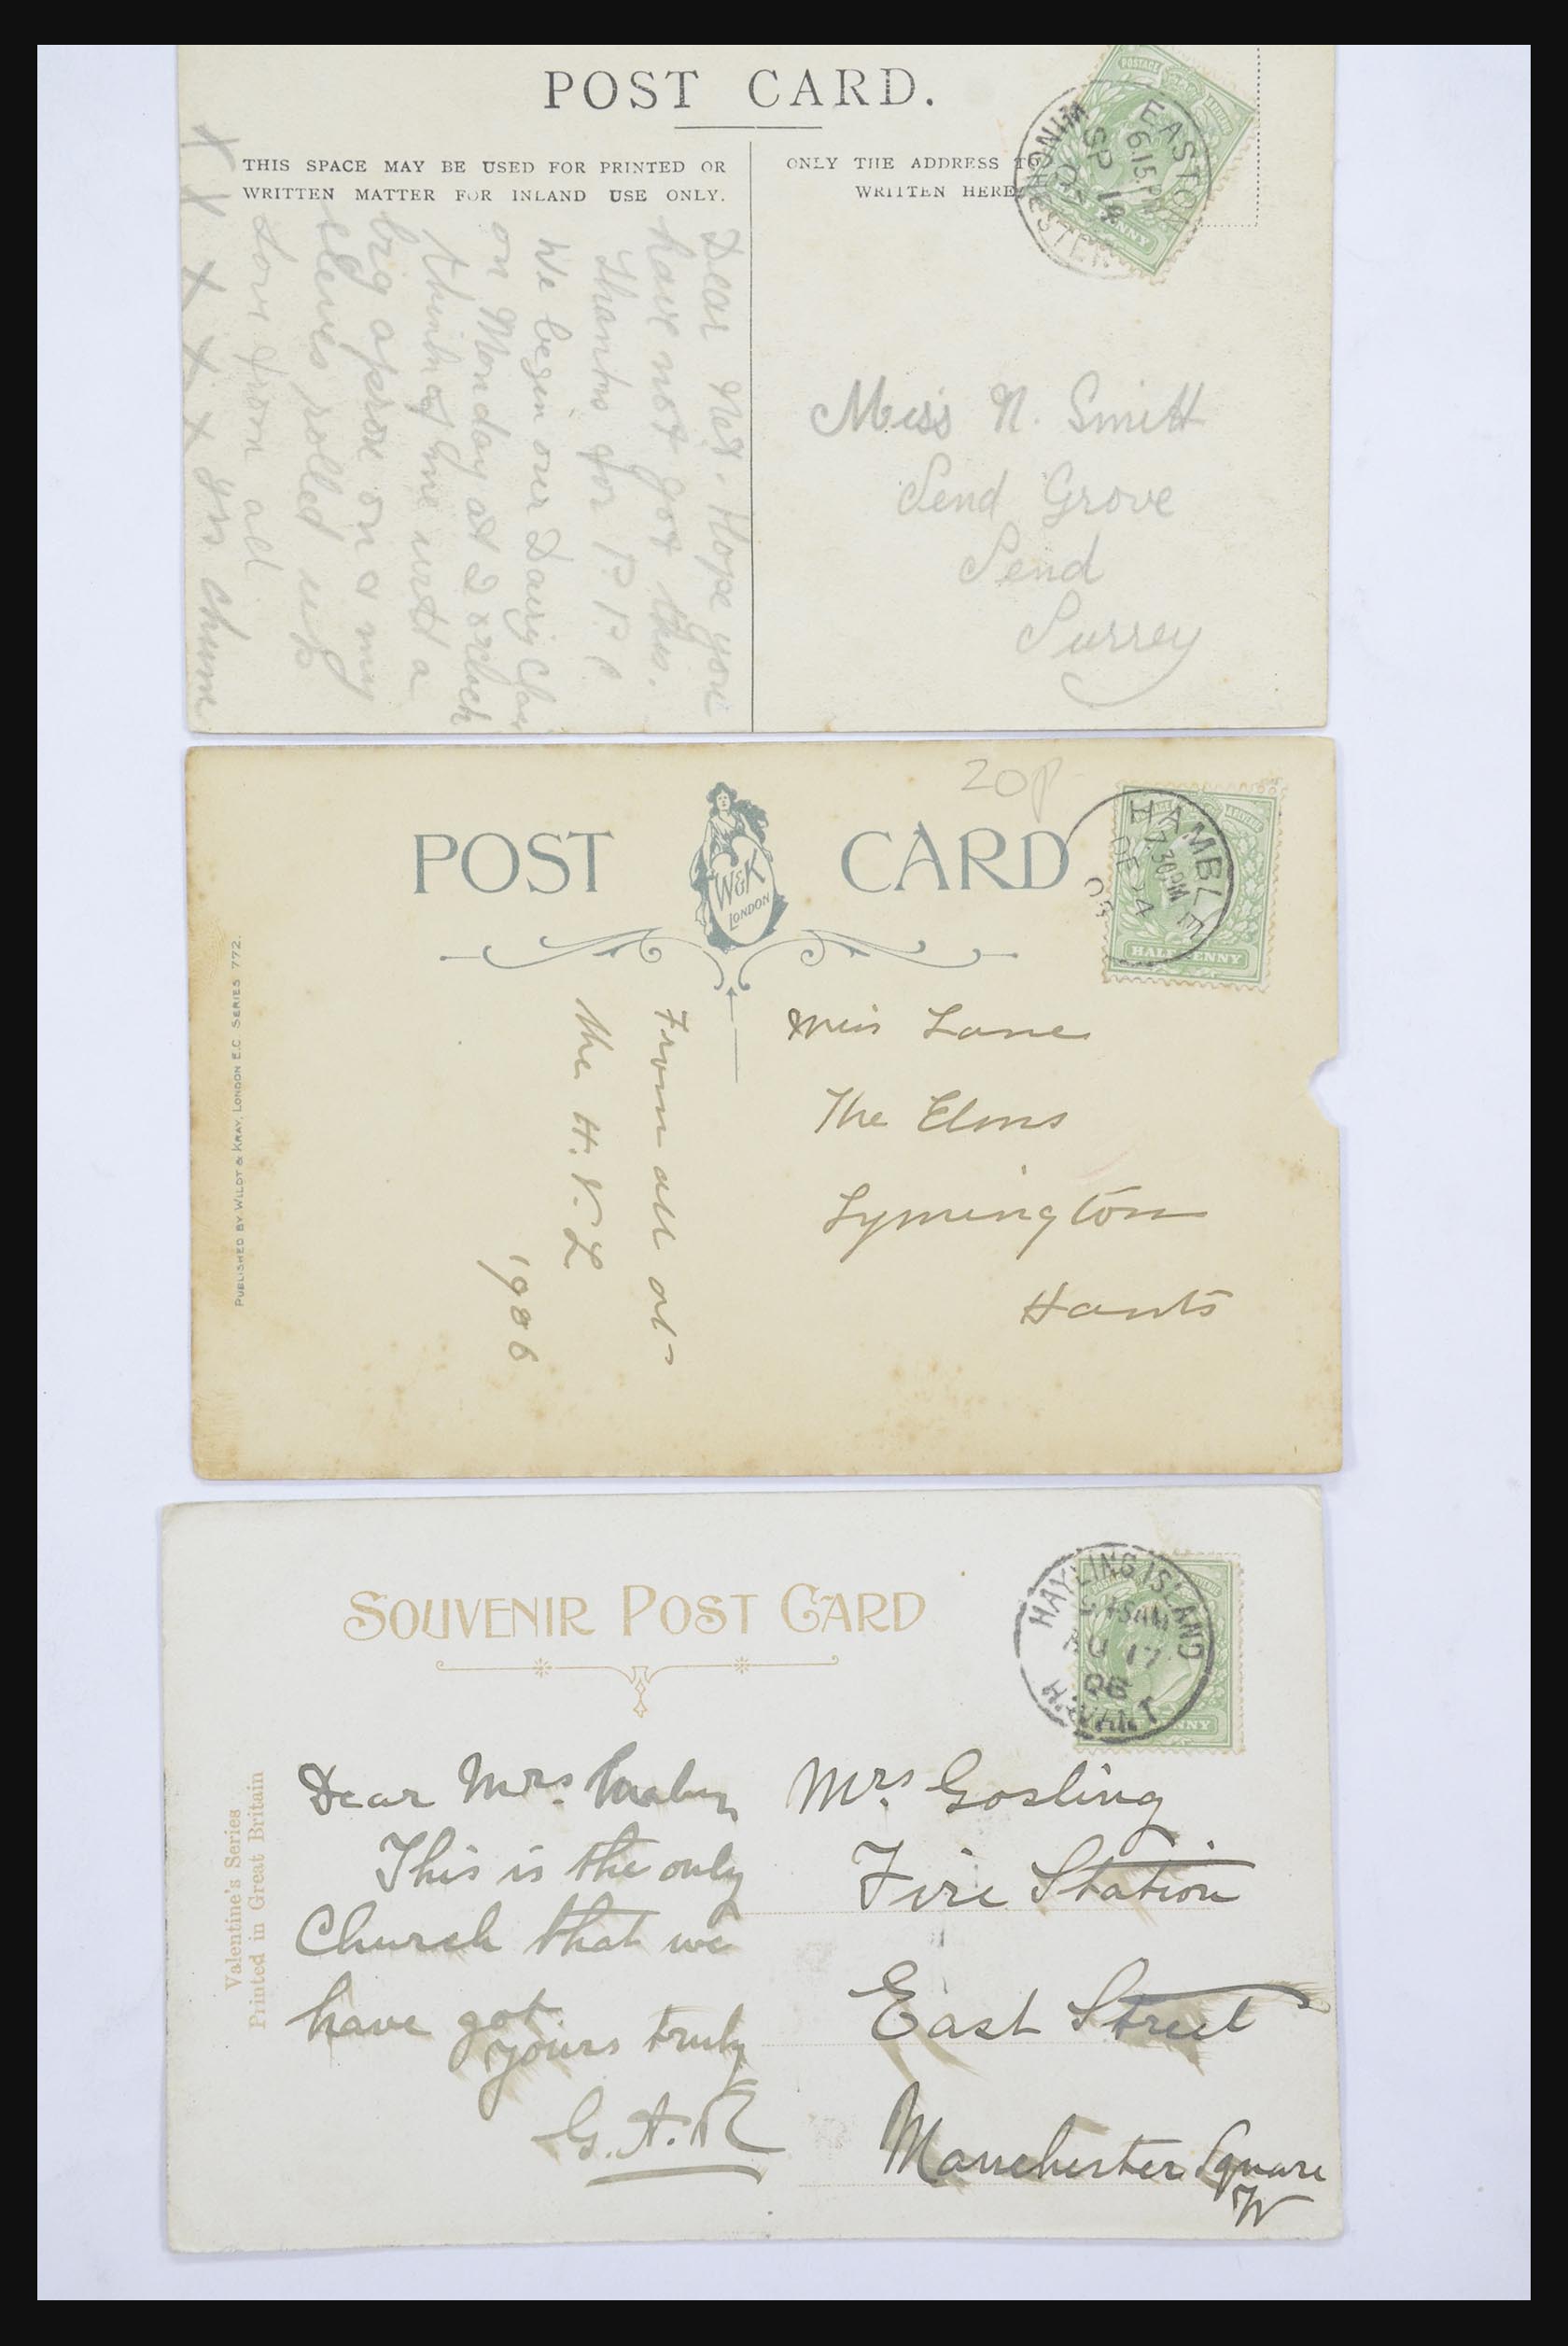 POST CARD.
THIS SPACE MAY BE USED FOR PRINTED OR
WRITTEN MATTER FOR INLAND USE ONLY.
ONLY THE ADDRESS TO
WRITTEN HERE
POSTAGE
EASTON
6 15 PM
SP 14
07
WINCHESTER
Dear Net. Hope you
have not got this.
Thanks for P.P.C
We begin our Dairy Clas
on Monday at 2 o'clock
think of me with a
big apron on & my
sleves rolled up
Love from all
x x x x x yrs chum
Miss N. Smith
Send Grove
Send
Surrey
20p
POST CARD
W&K
LONDON
HAMBLE
7.30PM
DE 24
HALFPENNY
PUBLISHED BY WILDT & KRAY, LONDON E.C. SERIES 772.
From all at
the H.V.L
1906
Miss Lane
The Elms
Lymington
Hants
SOUVENIR POST CARD
HAYLING ISLAND
45AM
17
06
HAVANT
Valentine's Series
Printed in Great Britain
Dear Mrs.
This is the only
Church that we
have got
yours truly
G.A.R
Mrs. Gosling
Fire Station
East Street
Manchester Square
W